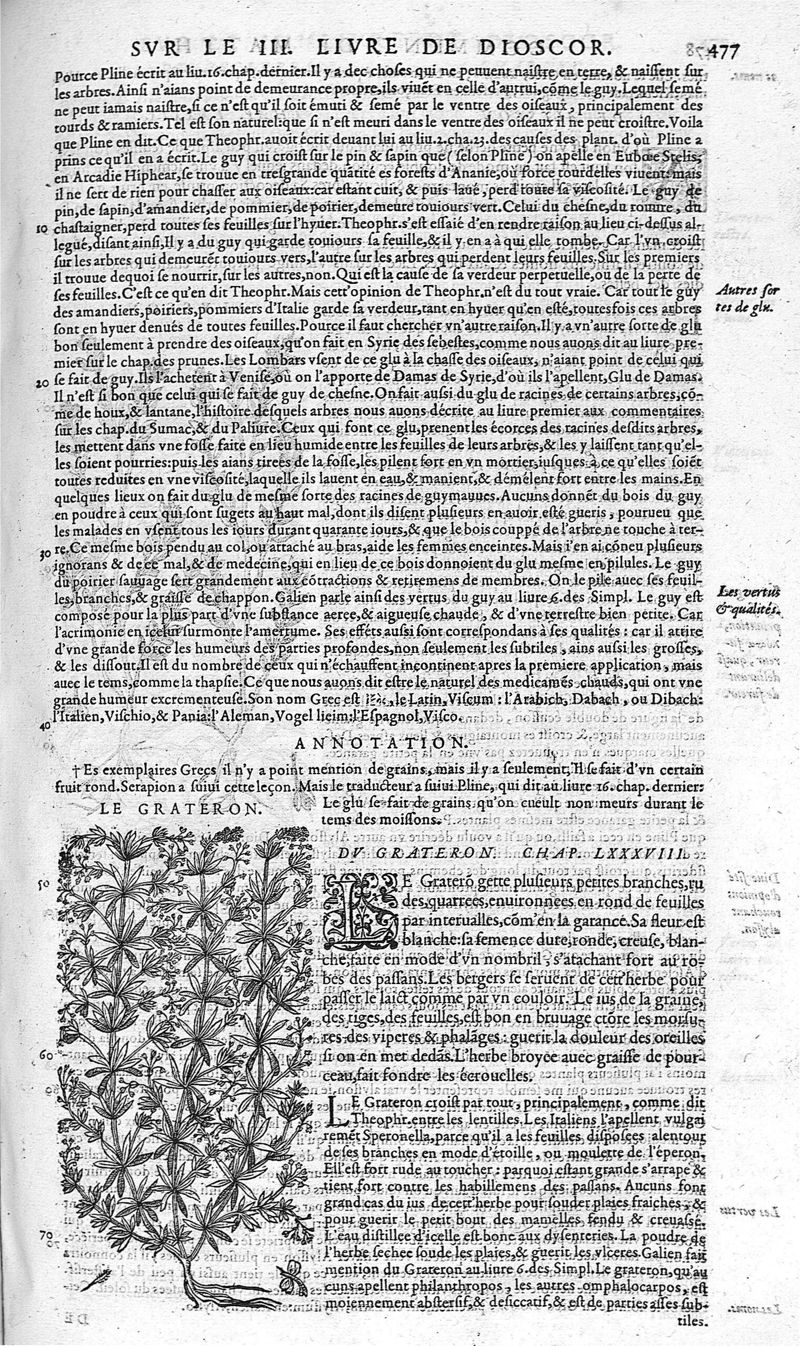 SVR LE III. LIVRE DE DIOSCOR. 477
Pource Pline écrit au liu.16.chap.dernier.Il y a dec choses qui ne peuuent naistre en terre, & naissent sur
les arbres.Ainsi n'aians point de demeurance propre,ils viuẽt en celle d'autrui,cõme le guy.Lequel semé
ne peut iamais naistre,si ce n'est qu'il soit émuti & semé par le ventre des oiseaux, principalement des
tourds & ramiers.Tel est son naturel:que si n'est meuri dans le ventre des oiseaux il ne peut croistre.Voila
que Pline en dit.Ce que Theophr.auoit écrit deuant lui au liu.2.cha.23.des causes des plant.d'où Pline a
prins ce qu'il en a écrit.Le guy qui croist sur le pin & sapin que ( selon Pline) on apelle en Euboie Stelis,
en Arcadie Hiphear,se trouue en tresgrande quãtité es forests d'Ananie,où force tourdelles viuent:mais
il ne sert de rien pour chasser aux oiseaux:car estant cuit, & puis laué ,perd toute sa viscosité. Le guy de
pin,de sapin,d'amandier,de pommier,de poirier,demeure toujours vert.Celui du chesne,du rouure, du
10 chastaigner,perd toutes ses feuilles sur l'hyuer.Theophr.s'est essaié d'en rendre raison au lieu ci-dessus al-
legué,disant ainsi,Il y a du guy qui garde touiours sa feuille,& il y en a à qui elle tombe. Car l'vn croist
sur les arbres qui demeurẽt toujours vers,l'autre sur les arbres qui perdent leurs feuilles.Sur les premiers
il trouue dequoi se nourrir,sur les autres,non.Qui est la cause de sa verdeur perpetuelle,où de la perte de
ses feuilles.C'est ce qu'en dit Theophr.Mais cett'opinion de Theophr.n'est du tout vraie. Car tout le guy
Autres sor
tes de glu.
des amandiers,poiriers,pommiers d'Italie garde sa verdeur,tant en hyuer qu'en esté,toutesfois ces arbres
sont en hyuer denués de toutes feuilles.Pource il faut chercher vn'autre raison.Il y a vn'autre sorte de glu
bon seulement à prendre des oiseaux,qu'on fait en Syrie des sebestes,comme nous auons dit au liure pre-
mier sur le chap.des prunes.Les Lombars vsent de ce glu à la chasse des oiseaux,n'aiant point de celui qui
20 se fait de guy.Ils l'achetent à Venise,où on l'apporte de Damas de Syrie,d'où ils l'apellent,Glu de Damas.
Il n'est si bon que celui qui se fait de guy de chesne.On fait aussi du glu de racines de certains arbres,cõ-
me de houx,& lantane,l'histoire desquels arbres nous auons décrite au liure premier aux commentaires
sur les chap.du Sumac,& du Paliure.Ceux qui font ce glu,prenent les écorces des racines desdits arbres,
les mettent dans vne fosse faite en lieu humide entre les feuilles de leurs arbres,& les y laissent tant qu'el-
les soient pourries:puis les aians tirées de la fosse,les pilent fort en vn mortier,iusques à ce qu'elles soiẽt
toutes reduites en vne viscosité,laquelle ils lauent en eau,& manient,& démélent fort entre les mains.En
quelques lieux on fait du glu de mesme sorte des racines de guymauues.Aucuns donnẽt du bois du guy
en poudre à ceux qui sont sugets au haut mal,dont ils disent plusieurs en auoir esté gueris , pourueu que
les malades en vsent tous les iours durant quarante iours,& que le bois couppé de l'arbre ne touche à ter-
30 re.Ce mesme bois pendu au col,ou attaché au bras,aide les femmes enceintes.Mais i'en ai cõneu plusieurs
ignorans & de ce mal,& de medecine,qui en lieu de ce bois donnoient du glu mesme en pilules. Le guy
du poirier sauuage sert grandement aux cõtractions & retiremens de membres. On le pile auec ses feuil-
Les vertus
& qualités.
les,branches,& graisse de chappon.Galien parle ainsi des vertus du guy au liure 6.des Simpl. Le guy est
composé pour la plus part d'vne substance aeree,& aigueuse chaude , & d'vne terrestre bien petite. Car
l'acrimonie en icelui surmonte l'amertume. Ses effets aussi sont correspondans à ses qualités : car il attire
d'vne grande force les humeurs des parties profondes,non seulement les subtiles , ains aussi les grosses,
& les dissout.Il est du nombre de ceux qui n'échauffent incontinent apres la premiere application, mais
auec le tems,comme la thapsie.Ce que nous auons dit estre le naturel des medicamẽs chauds,qui ont vne
grande humeur excrementeuse.Son nom Grec est , le Latin, Viscum : l'Arabich, Dabach , ou Dibach:
40 l'Italien, Vischio, & Pania:l'Aleman, Vogel lieim:l'Espagnol,Visco.
ANNOTATION.
† Es exemplaires Grecs il n'y a point mention de grains, mais il y a seulement,Il se fait d'vn certain
fruit rond.Serapion a suiui cette leçon.Mais le traducteur a suiui Pline, qui dit au liure 16. chap. dernier:
Le glu se fait de grains qu'on cueult non meurs durant le
tems des moissons.
LE GRATERON.
DV GRATERON. CHAP. LXXXVIII.
50 LE Graterõ gette plusieurs petites branches,ru
des,quarrees,enuironnees en rond de feuilles
par interualles,cõm'en la garance.Sa fleur est
blanche:sa semence dure,ronde,creuse,blan-
che,faite en mode d'vn nombril , s'atachant fort au ro-
bes des passans.Les bergers se seruent de cett'herbe pour
passer le laict comme par vn couloir. Le ius de la graine,
des tiges,des feuilles,est bon en bruuage cõtre les morsu-
res des viperes & phalãges : guerit la douleur des oreilles
60 si on en met dedãs.L'herbe broyee auec graisse de pour-
ceau,fait fondre les écrouelles.
LE Grateron croist par tout , principalement , comme dit
Theophr.entre les lentilles.Les Italiens l'apellent vulgai
remẽt Speronella,parce qu'il a les feuilles disposees alentour
de ses branches en mode d'étoille, ou moulette de l'éperon.
Ell'est fort rude au toucher : parquoi estant grande s'arrape &
tient fort contre les habillemens des passans. Aucuns font
grand cas du ius de cett'herbe pour souder plaies fraiches , &
pour guerir le petit bout des mamelles fendu & creuassé.
70 L'eau distillee d'icelle est bone aux dysenteries. La poudre de
l'herbe sechee soude les plaies,& guerit les vlceres.Galien fait
mention du Grateron au liure 6.des Simpl.Le grateron,qu'au
cuns apellent philanthropos , les autres omphalocarpos, est
moiennement abstersif,& desiccatif,& est de parties asses sub-
tiles.